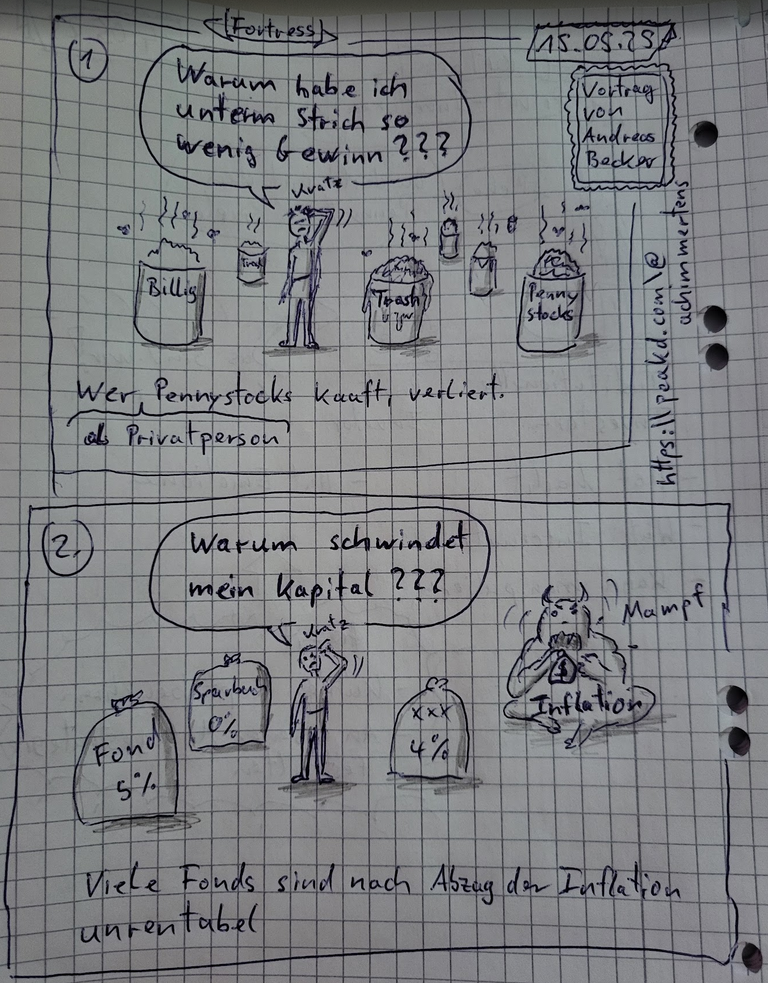 <Fortress>
15.05.25
Vortrag
von
Andreas
Becker
1
Warum habe ich
unterm Strich so
wenig Gewinn ???
kratz
Billig
Trash
Trash
Penny
stocks
Wer Pennystocks kauft, verliert.
als Privatperson
https://peakd.com/@
achimmertens
2.
Warum schwindet
mein Kapital ???
kratz
Mampf
Sparbuch
0%
Fond
5%
xxx
4%
$
Inflation
Viele Fonds sind nach Abzug der Inflation
unrentabel